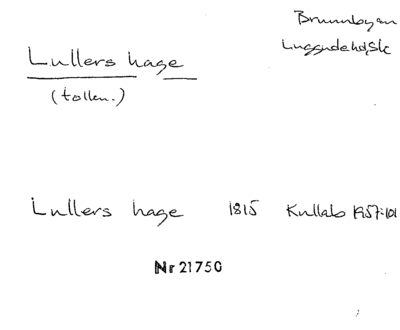 Brunnby sn
Luggude hd, Sk
Lullers hage
(tollen.)
Lullers hage 1815 Kullab 1957:101
Nr 21750